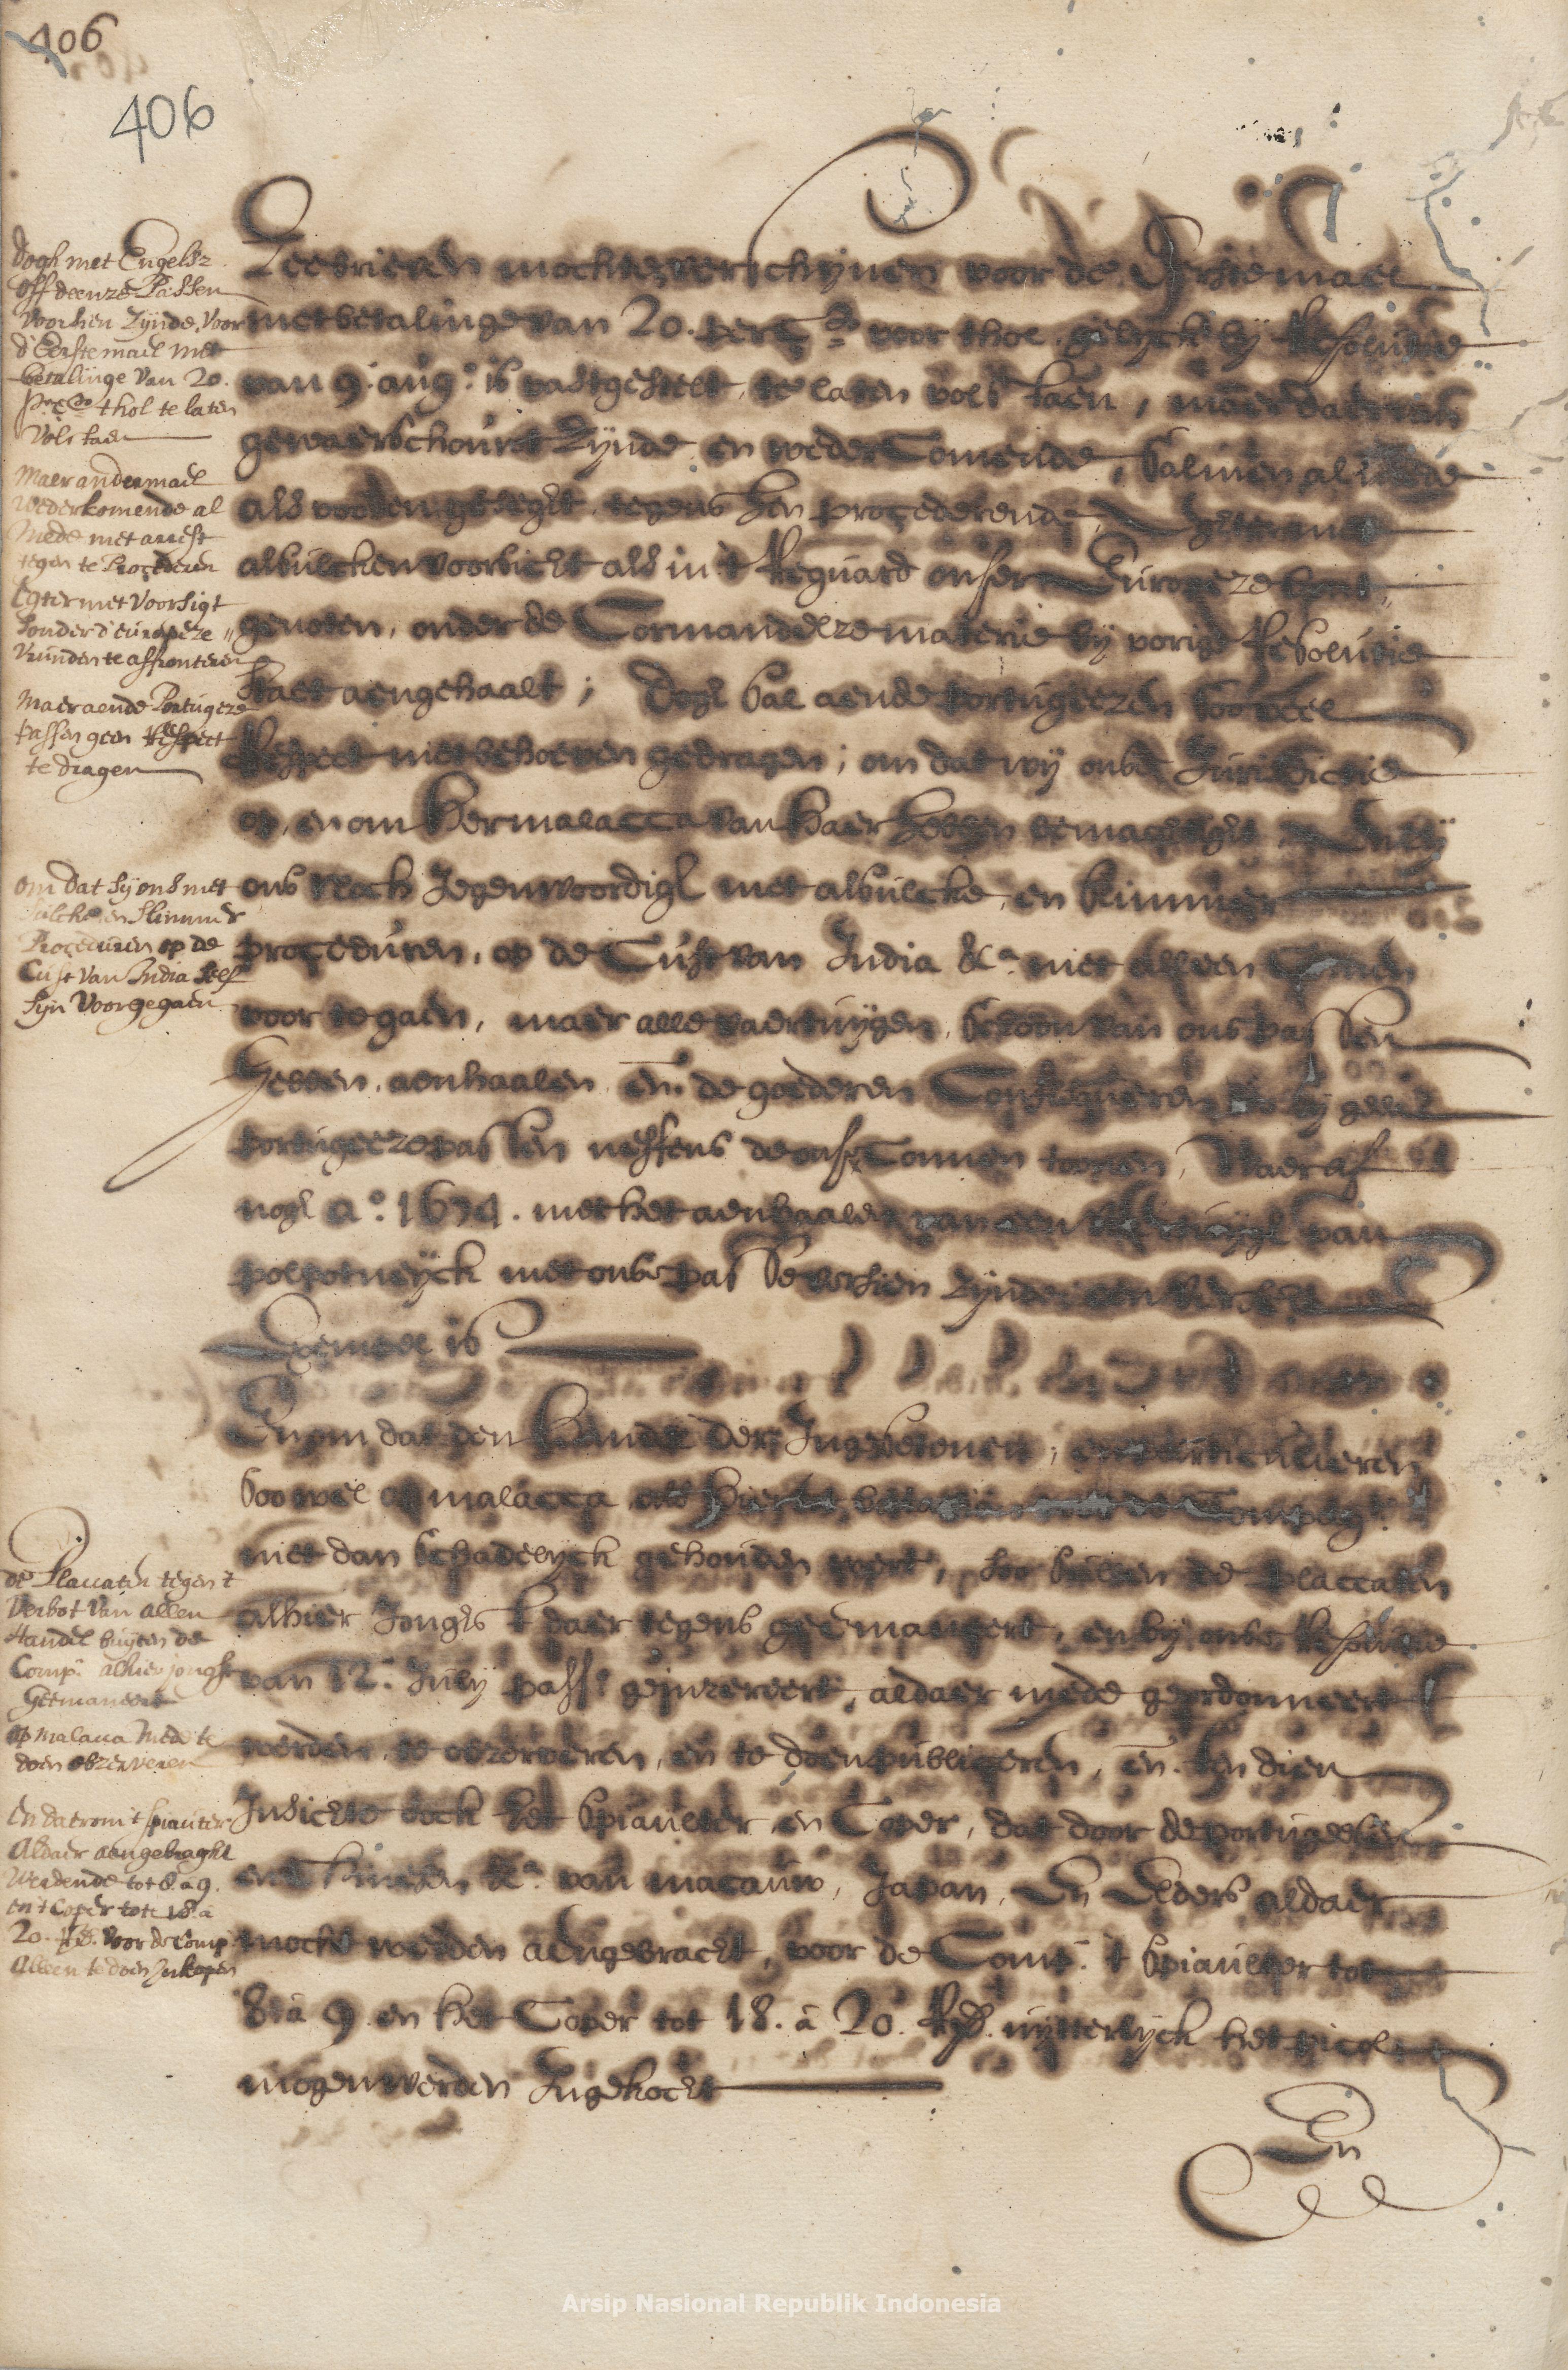 406
406
dogh met Engelsz
off deenze Passen
voorsien zijnde, voor
d'Eerstemael met
betalinge van 20.
per Co thol te laten
volstaen
Maer andermael
wederkomende al
mede met arrest
tegen te Procederen
Egter met voorsigt
sonder d'europeze
vrunden te affronteren
Maer aende Portugeze
passen geen Respect
te dragen
om dat sij ons met
sulcke en slimmer
Proceduren op de
Cust van India self
sijn voorgegaen
de Placcaten tegen t
verbot van allen
Handel buijten de
Comp.e alhier jongst
Geemaneert
op malacca mede te
doen obzerveren
En dat rom t spiauter
aldaer aengebraght
werdende tot 8. a 9.
en t Coper tot 18. a
20. Rd.s voor de Comp.
alleen te doen Inkopen
mochte verschijnen voor de Eerstemael
met betalinge van 20. per Co voor thol. gelijck bij Resolutie
van 9. aug.o is vastgestelt, te laten volstaen, maer daer van
gewaerschouwt zijnde en weder Comende, sal men al mede
als vooren geseght tegens hen procederende, Eghter met
alsulcken voorsicht als in 't Reguard onser Europeze bont
genoten, onder de Cormandelze materie bij vorige Resolutie
staet aengehaalt; dogh sal aende portugeezen soo veel
Respect niet behoeven gedragen; om dat wij onse Jurisdictie
op, en om her malacca van haer hebben bemachtight, En sij
ons noch Jegenwoordigh met alsulcke, en slimmer
proceduren, op de Cust van India &a. niet alleen comen
voor te gaen, maer alle vaertuijgen, schoon van ons passen
hebben, aenhaalen en de goederen Confisqueren die sij geen
portugeeze passen neffens de onse Connen toonen, Waer af
nogh a.o 1674. met het aenhaalen van een vaertuijgh van
polpetneijck met onse pas versien zijnde een versch
Exempel is
En om dat den Handel der Ingesetenen, en particulieren
soo wel op malacca als hier te batavia voor de Comp.e
niet dan schadelijck gehouden wert, soo sullen de placcaten
alhier Jonghst daer tegens geemaneert, en bij onse Resolutie
van 12.e Julij pass.o geinzereert, aldaer mede geordonneert
werden, te obzerveren, en te doen publiceren, en ten dien
Insichte oock het spiaulter en Coper, dat door de portugeesen
en Chinesen &a. van macauw, Japan, En Elders aldaer
mocht werden aengebracht, voor de Comp.e t spiaulter tot
8. a 9 en het Coper tot 18. a 20. Rd.s uijtterlijck het picol
mogen werden Ingekocht
En
Arsip Nasional Republik Indonesia